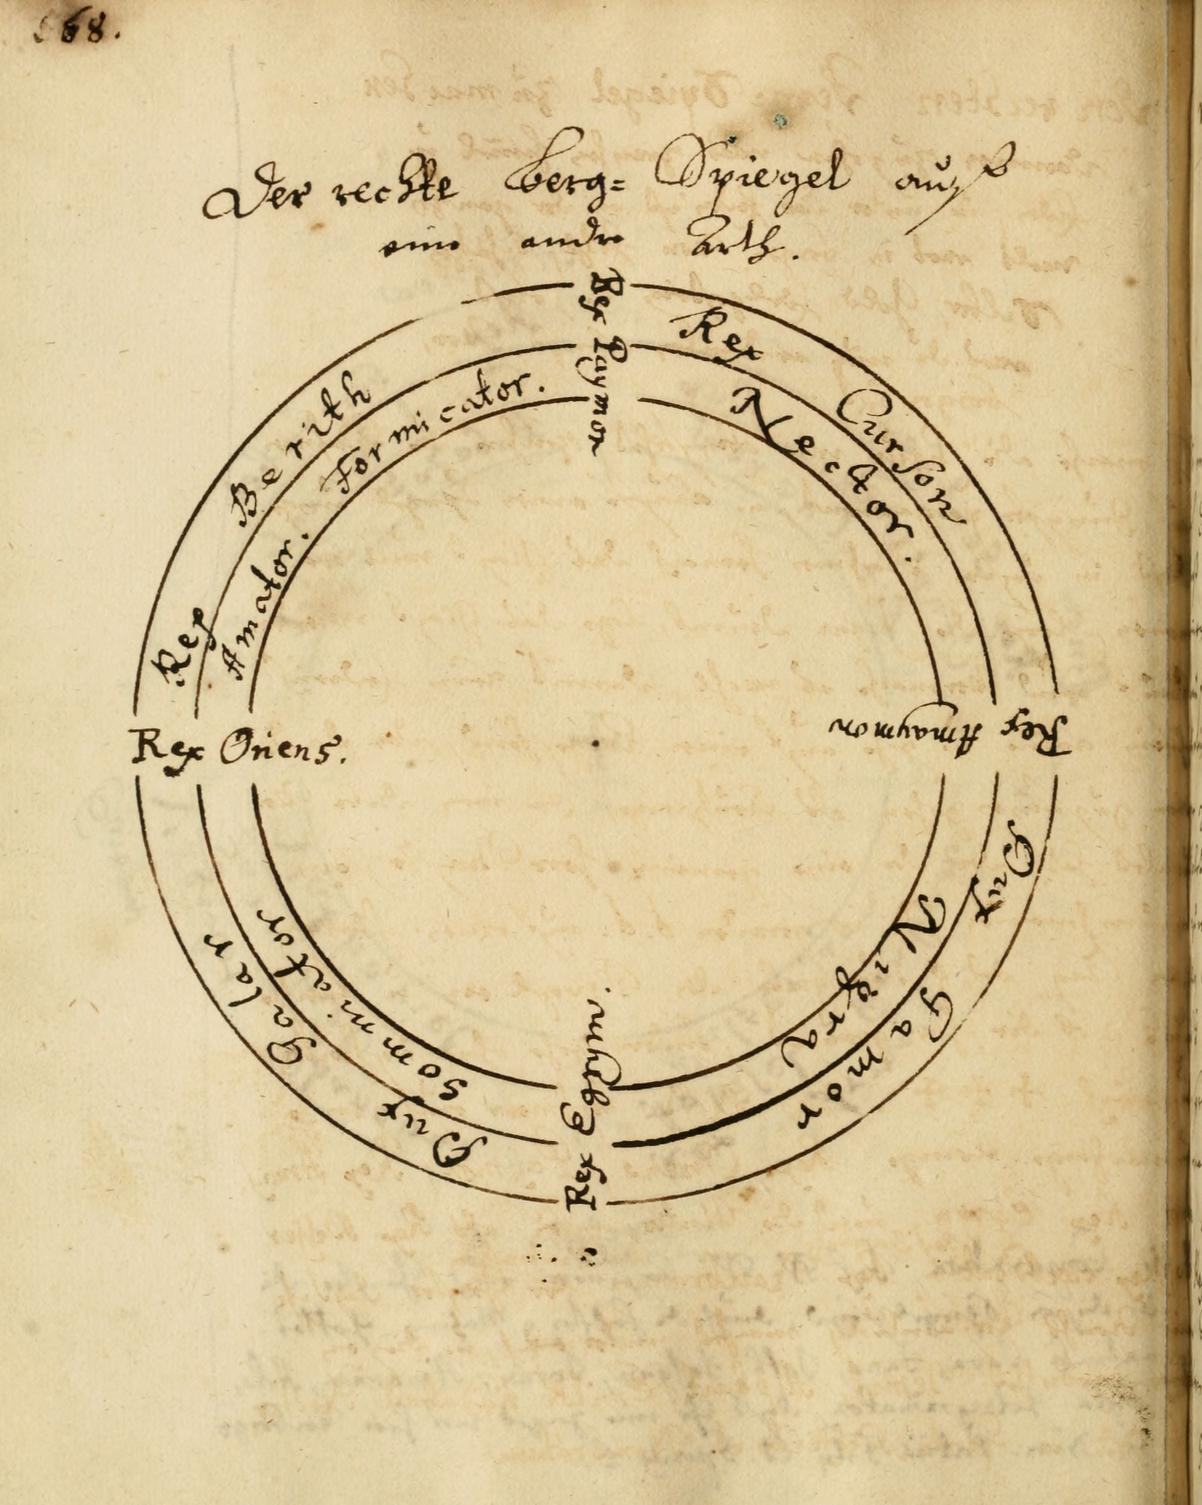 568.
Der rechte Berg= Spiegel auff
eine andre Arth.
Rex Paymon
Rex Curson
Nector.
Rex Amaymon
Dux Gamor
Nigra
Rex Egÿhym.
Dux Galar
somniator
Rex Oriens.
Rex Berith
Amator. Formicator.